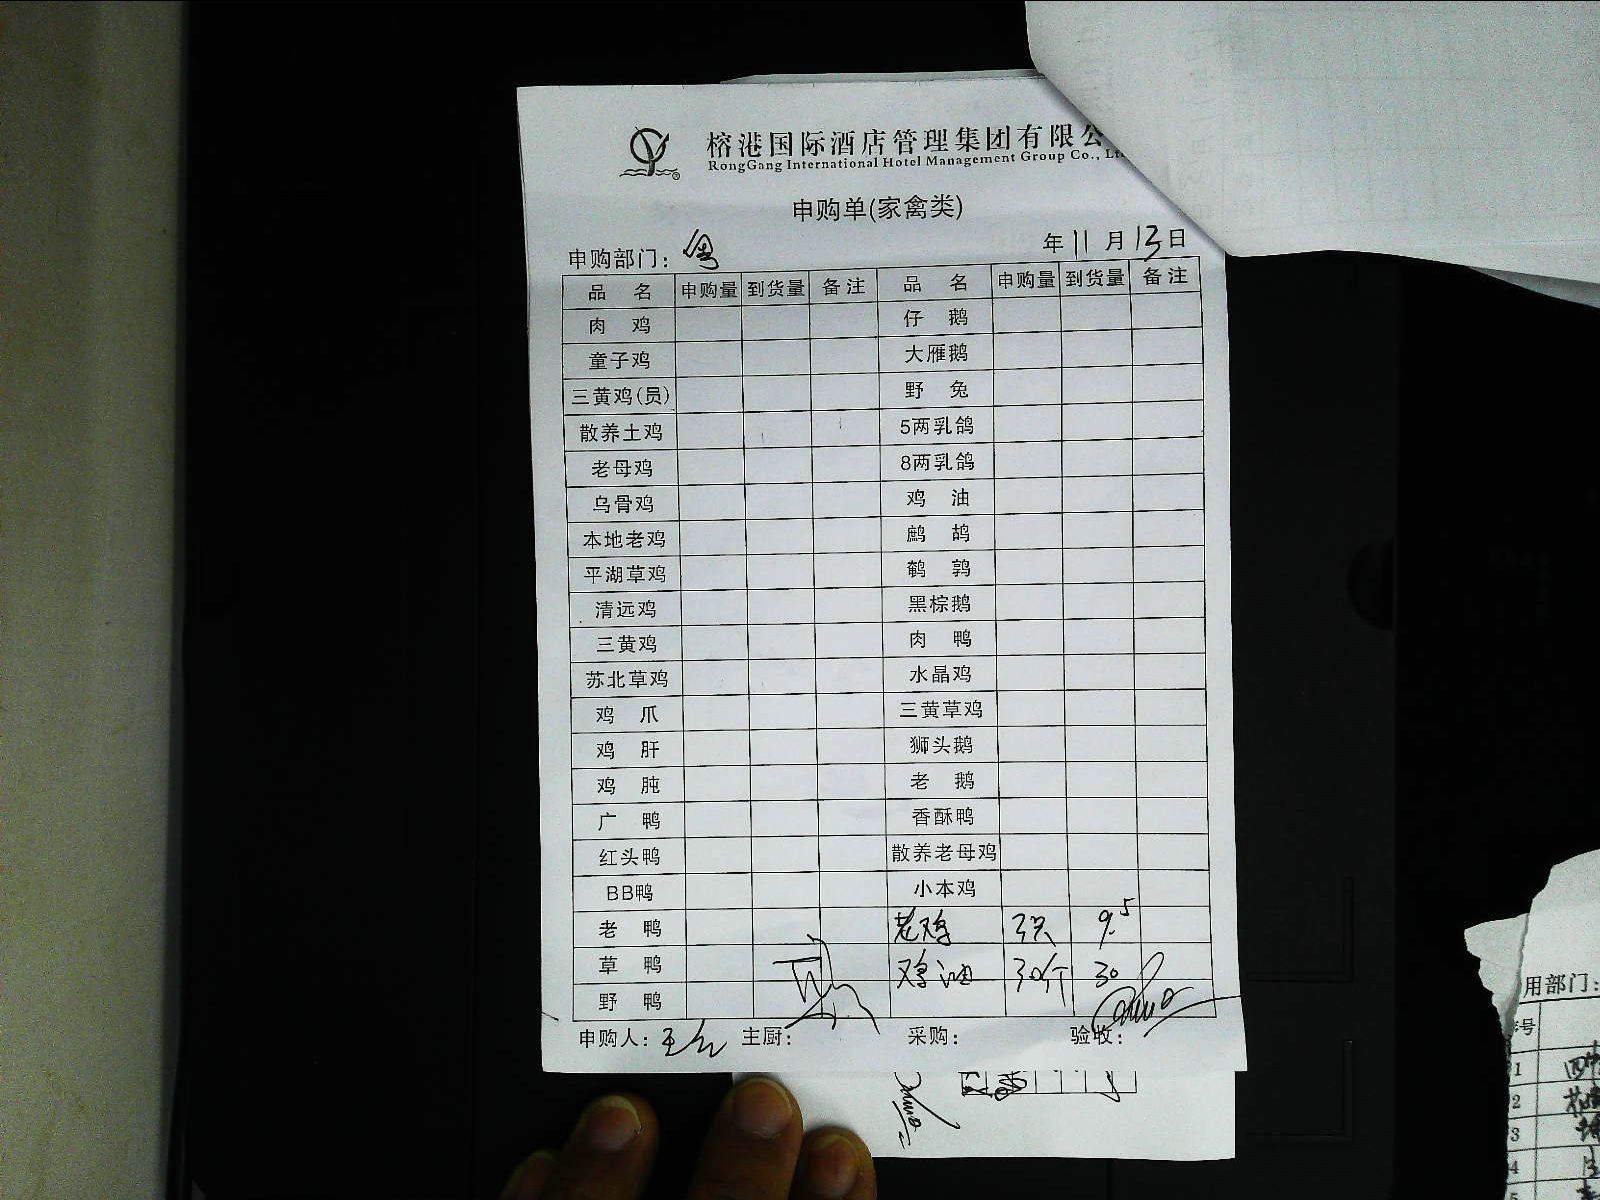 榕港国际酒店管理集团有限公
RongGang International Hotel Management Group Co., Lt
申购单(家禽类)
申购部门：粤 年11月13日
品 名 申购量 到货量 备注 品 名 申购量 到货量 备注
肉 鸡 仔 鹅
童子鸡 大雁鹅
三黄鸡(员) 野 兔
散养土鸡 5两乳鸽
老母鸡 8两乳鸽
乌骨鸡 鸡 油
本地老鸡 鹧 鸪
平湖草鸡 鹌 鹑
清远鸡 黑棕鹅
三黄鸡 肉 鸭
苏北草鸡 水晶鸡
鸡 爪 三黄草鸡
鸡 肝 狮头鹅
鸡 肫 老 鹅
广 鸭 香酥鸭
红头鸭 散养老母鸡
BB鸭 小本鸡
老 鸭 老鸡 3只 9.5
草 鸭 鸡油 30斤 30
野 鸭
申购人： 主厨： 采购： 验收：
用部门：
序号
1
2
3
4